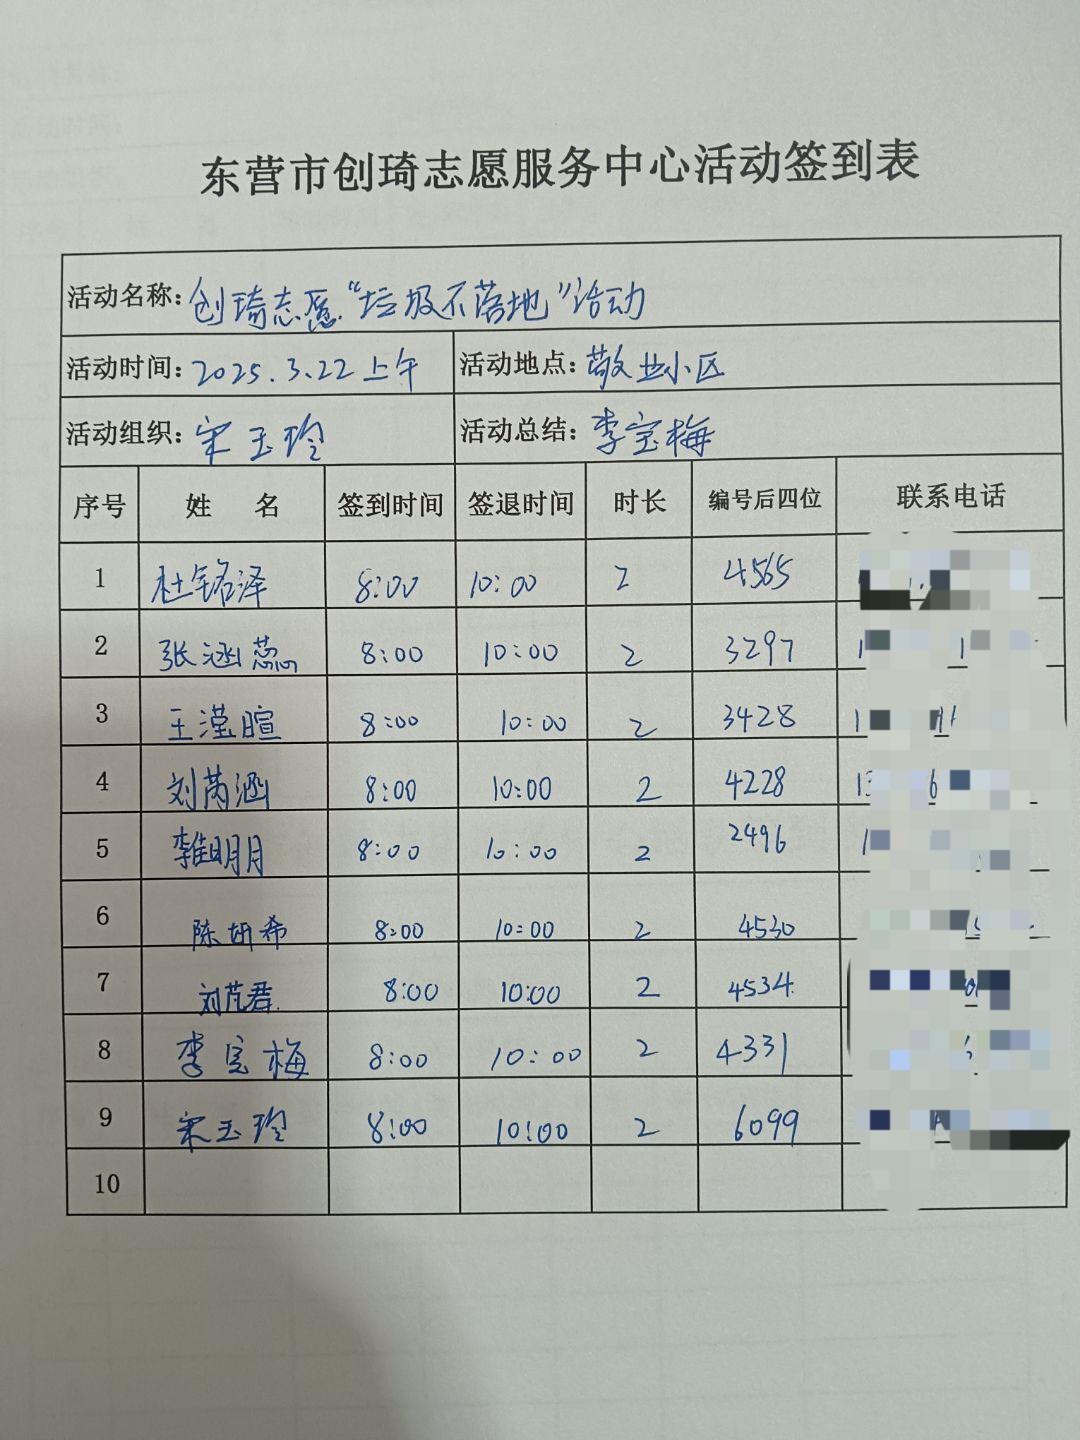 东营市创琦志愿服务中心活动签到表
活动名称: 创琦志愿“垃圾不落地”活动
活动时间: 2025.3.22上午 活动地点: 敬业小区
活动组织: 宋玉玲 活动总结: 李宝梅
序号 姓 名 签到时间 签退时间 时长 编号后四位 联系电话
1 杜铭泽 8:00 10:00 2 4565
2 张涵蕊 8:00 10:00 2 3297
3 王滢暄 8:00 10:00 2 3428
4 刘芮涵 8:00 10:00 2 4228
5 8:00 10:00 2 2496
6 陈妍希 8:00 10:00 2 4530
7 刘芃君 8:00 10:00 2 4534
8 李宝梅 8:00 10:00 2 4331
9 宋玉玲 8:00 10:00 2 6099
10